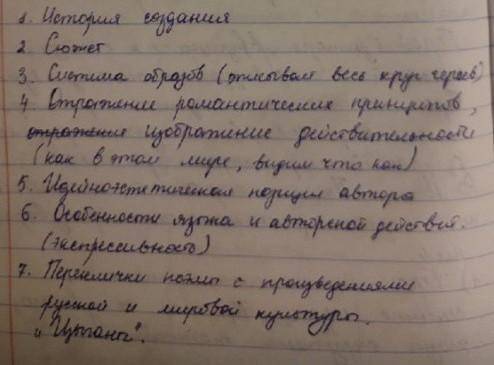 1. История создания
2. Сюжет
3. Система образов (описывая весь круг героев)
4. Отражение романтических принципов,
отражения изображение действительности
(как в этом мире, видим что как)
5. Идейноэстетическая позиция автора
6. Особенности языка и авторской действит.
(экспрессивность)
7. Переклички поэмы с произведениями
русской и мировой культуры.
„Цыганы".